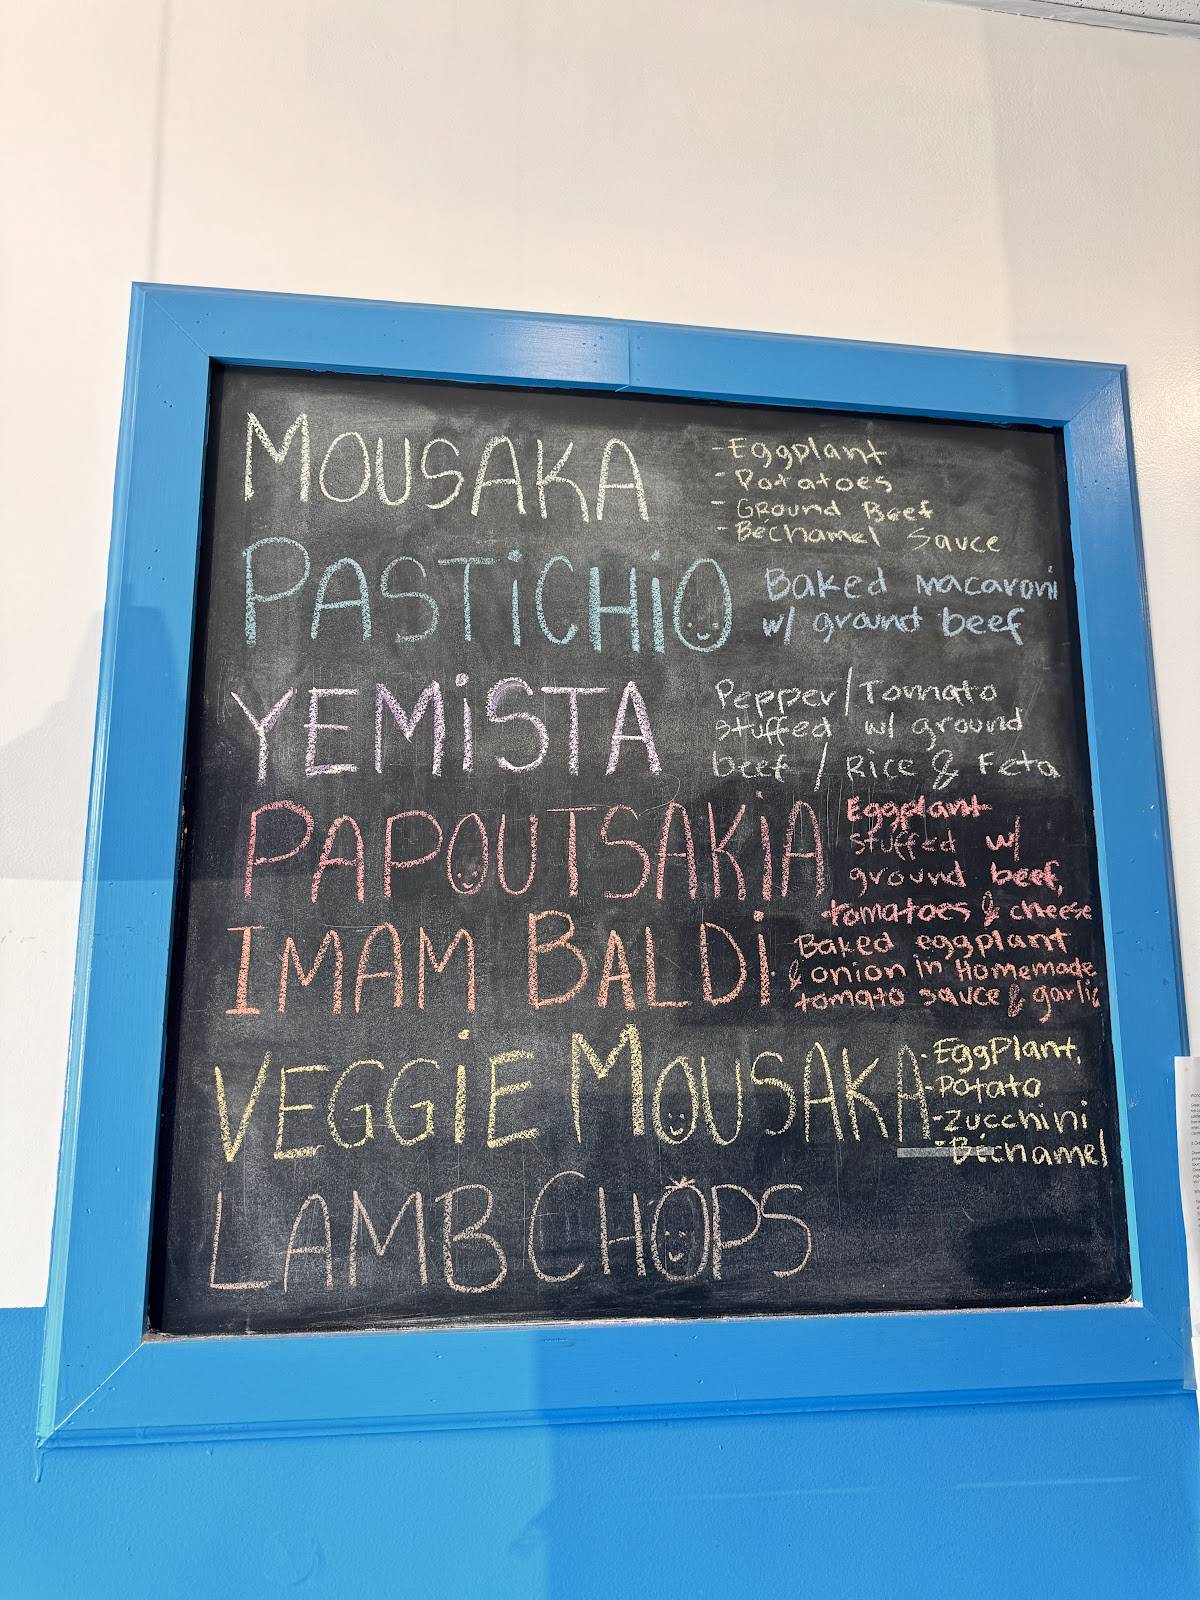 MOUSAKA
- Eggplant
- Potatoes
- Ground Beef
- Béchamel Sauce
PASTiCHiO
Baked macaroni
w/ ground beef
YEMiSTA
Pepper/Tomato
stuffed w/ ground
beef / Rice & Feta
PAPOUTSAKiA
Eggplant
stuffed w/
ground beef,
tomatoes & cheese
IMAM BALDi
Baked eggplant
& onion in Homemade
tomato sauce & garlic
VEGGiE MOUSAKA
- EggPlant,
- Potato
- Zucchini
- Béchamel
LAMB CHOPS